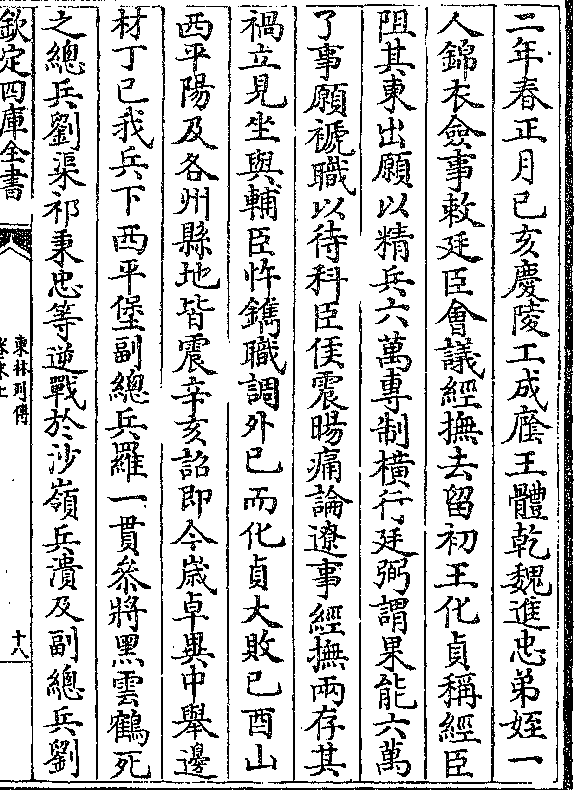 二年春正月己亥慶陵工成廕王體乾魏進忠弟姪一
人錦衣僉事敕廷臣會議經撫去留初王化貞稱經臣
阻其東出願以精兵六萬專制横行廷弼謂果能六萬
了事願褫職以待科臣侯震暘痛論遼事經撫兩存其
禍立見坐與輔臣忤鐫職調外已而化貞大敗己酉山
西平陽及各州縣地皆震辛亥詔即今歲卓異中舉邊
材丁巳我兵下西平堡副總兵羅一貫叅將黑雲鶴死
之總兵劉渠祁秉忠等逆戰於沙嶺兵潰及副總兵劉
欽定四庫全書
東林列傳
卷末上
十八